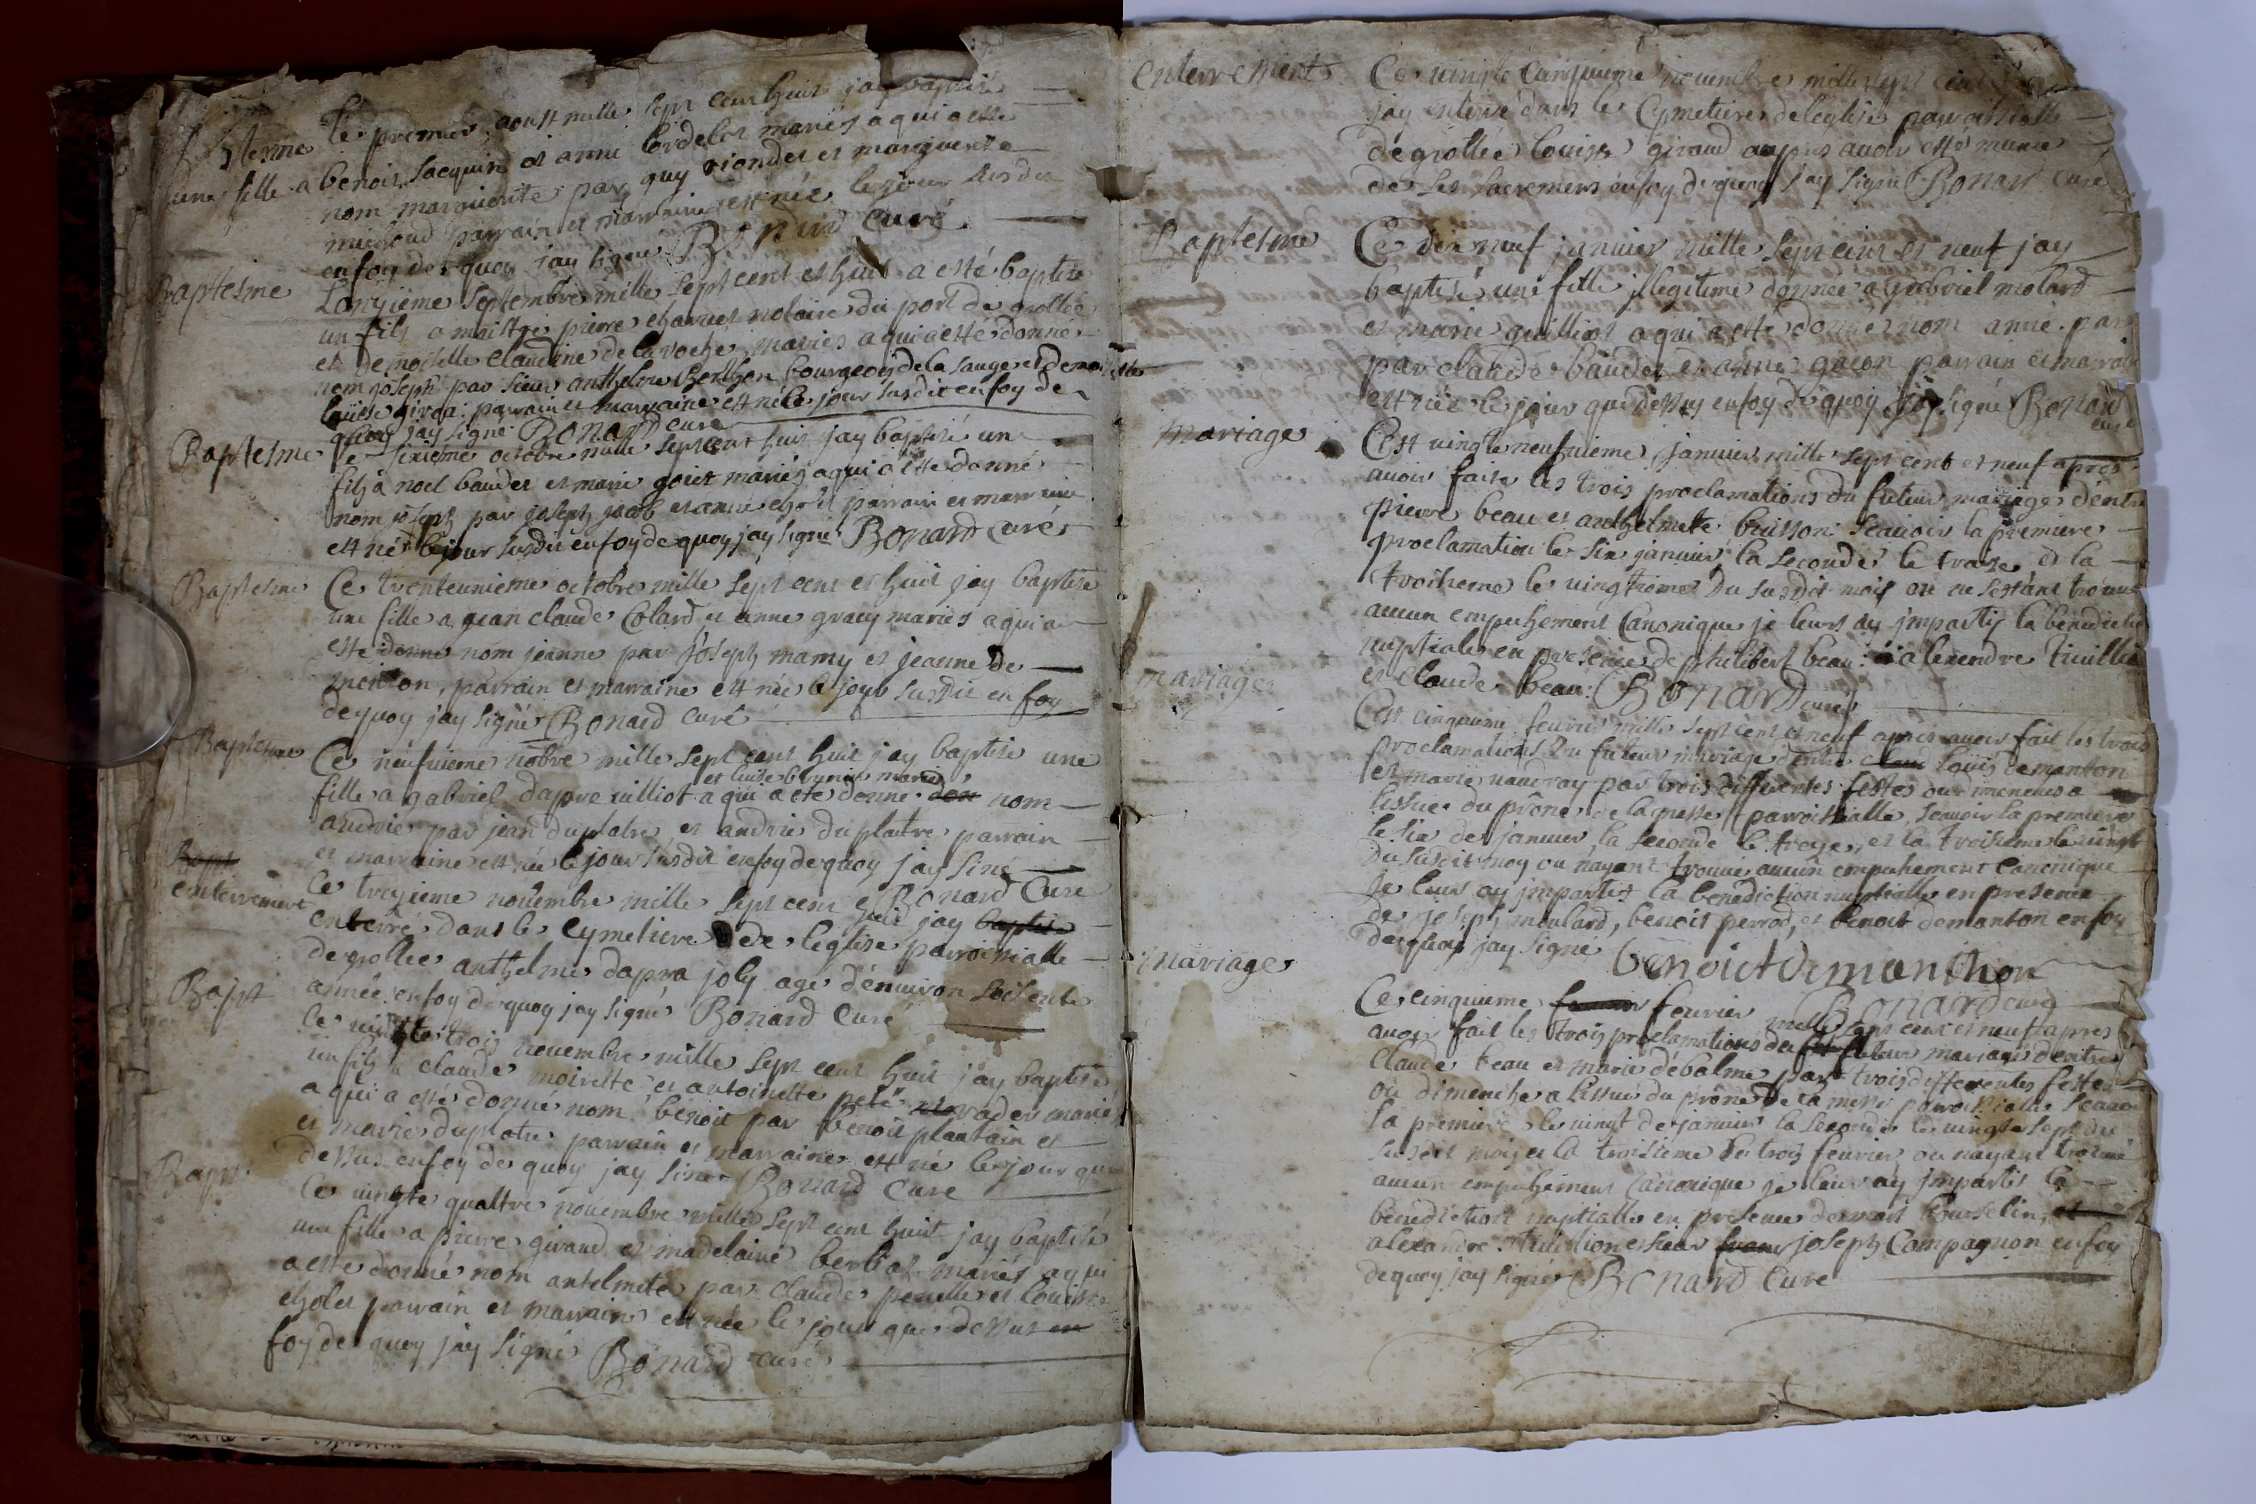 Le premier aoust mille sept cent huit jay baptisé
une fille a benoit Jacquin et anne cordelet mariés a qui a esté
nom marguerite par guy riondet et marguerite
michoud parrain et marraine est née le jour susdit
en foy de quoy jay signé Bonard Curé
Baptesme
Lonzieme septembre mille sept cent et huit a esté baptisé
un fils a maistre pierre charvet notaire du port de grollée
et demoiselle claudine de la roche mariés a qui a esté donné
nom joseph par sieur anthelme Berthon bourgeois de la sauge et demoiselle
louise girod parrain et marraine est né le jour susdit en foy de
quoy jay signé Bonard curé
Baptesme
Le sixieme octobre mille sept cent huit jay baptisé un
fils a noel baudet et marie goiet mariés a qui a esté donné
nom joseph par joseph jacob et anne cholet parrain et marraine
est né le jour susdit en foy de quoy jay signé Bonard Curé
Baptesme
Ce trenteunieme octobre mille sept cent et huit jay baptisé
une fille a jean claude Colard et anne gracy mariés a qui a
esté donné nom jeanne par joseph mamy et jeanne de
menton, parrain et marraine est née le jour susdit en foy
de quoy jay signé Bonard curé
Baptesme
Ce neufuieme nobre mille sept cent huit jay baptisé une
fille a gabriel dapre uilliot a qui a esté donné don nom
andrie par jean duplatre et andrie duplatre parrain
et marraine est née le jour susdit en foy de quoy jay siné
Bonard Curé
Bapt
enterrement
Ce trezieme nouembre mille sept cent et
huit jay baptisé
enterré dans le Cymetiere de leglise parroissialle
de grollee anthelme dapra joly agé denuiron soisente
année en foy de quoy jay signé Bonard Curé
Bapt
Ce uingte trois nouembre mille sept cent huit jay baptisé
un fils a claude moirette et antoinette
a qui a esté donné nom benoit par Benoit plantain et
et marie duplatre parrain et marraine est né le jour que
dessus en foy de quoy jay siné Bonard Curé
Bapt
Ce uingte quattre nouembre mille sept cent huit jay baptisé
une fille a pierre giraud et madelaine berliat mariés a qui
a esté donné nom antelmete par Claude perrelle et Louise
cholet parrain et marraine est née le jour que dessus en
foy de quoy jay signé Bonard curé
enterrement
Ce uingte cinquieme nouembre mille sept cent
jay enterré dans le Cymetiere de leglise parroissialle
de grollée louise giraud aupres auoir esté munie
de ses sacremens en foy de quoy jay signé Bonard Curé
Baptesme
Ce dix neuf januier mille sept cent et neuf jay
baptisé une fille jllegitime donnée a gabriel molard
et marie guilliot a qui a esté donné nom anne par
par claude baudet et anne gueon parrain et marraine
est née le jour que dessus en foy de quoy jay signé Bonard
curé
mariage
Cest uingte neufuieme januier mille sept cent et neuf apres
auoir faite les trois proclamations du futeur mariage dentre
pierre beau et anthelmete buisson scauoir la premiere
proclamation le six januier, la seconde le traize et la
troisieme le uingtieme du susdit mois ou ne sestant trouué
aucun empechement Canonique je leurs ay jmparty la benediction
nuptiale en presence de philibert beau alexendre tuillion
et Claude beau: Bonard curé
mariage
Cest cinquieme feurier mille sept cent et neuf apres auoir fait les trois
proclamations du futeur mariage dentre claud louis demanton
et marie naudray par trois differentes festes ou dimenches a
lissue du prône de la messe parroissialle, scauoir la premiere
le six de januier, la seconde le treze, et la troisieme le uingt
du susdit moy ou nayant trouué aucun empechement canonique
je leurs ay jmpartit la benediction nuptialle en presence
de joseph moulard, benoit perrod, et benoit demanton en foy
de quoy jay signé
Benoict demanthon
Bonard curé
mariage
Ce cinquieme feurier mille sept cent et neuf apres
auoir fait les trois proclamations du futeur mariage dentre
claude beau et marie debalme par trois differentes festes
ou dimenche a lissue du prône de la messe parroissialle scauoir
la premiere le uingt de januier la seconde le uingte sept du
susdit mois et la troisieme le trois feurier ou nayant trouué
aucun empechement Canonique je leurs ay jmpartit la
benediction nuptialle en presence et
alexandre tuillion et sieur joseph Compagnon en foy
de quoy jay signé Bonard Curé